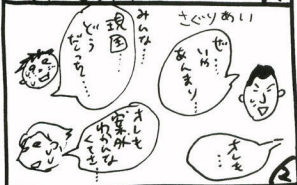 さぐりあい
みんな…
現国…
どう
だった…
ぜ…
いや
あんまり…
オレも
…
オレも
案外
わかんな
くてさ…
2